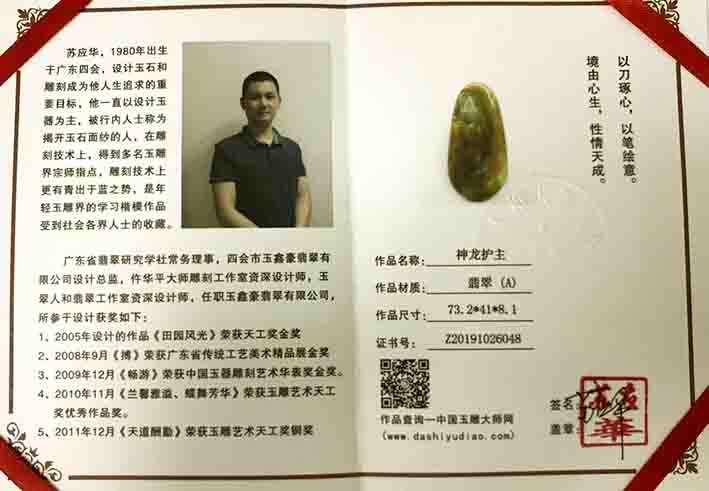 苏应华，1980年出生
于广东四会，设计玉石和
雕刻成为他人生追求的重
要目标，他一直以设计玉
器为主，被行内人士称为
揭开玉石面纱的人，在雕
刻技术上，得到多名玉雕
界宗师指点，雕刻技术上
更有青出于蓝之势，是年
轻玉雕界的学习楷模作品
受到社会各界人士的收藏。
广东省翡翠研究学社常务理事，四会市玉鑫豪翡翠有
限公司设计总监，仵华平大师雕刻工作室资深设计师，玉
翠人和翡翠工作室资深设计师，任职玉鑫豪翡翠有限公司，
所参于设计获奖如下：
1、2005年设计的作品《田园风光》荣获天工奖金奖
2、2008年9月《搏》荣获广东省传统工艺美术精品展金奖
3、2009年12月《畅游》荣获中国玉器雕刻艺术华表奖金奖。
4、2010年11月《兰馨雅溢、蝶舞芳华》荣获玉雕艺术天工
奖优秀作品奖。
5、2011年12月《天道酬勤》荣获玉雕艺术天工奖铜奖
以刀琢心，以笔绘意。
境由心生，性情天成。
作品名称： 神龙护主
作品材质： 翡翠（A）
作品尺寸： 73.2*41*8.1
证书号： Z20191026048
作品查询—中国玉雕大师网
(www.dashiyudiao.com)
签名：
盖章：